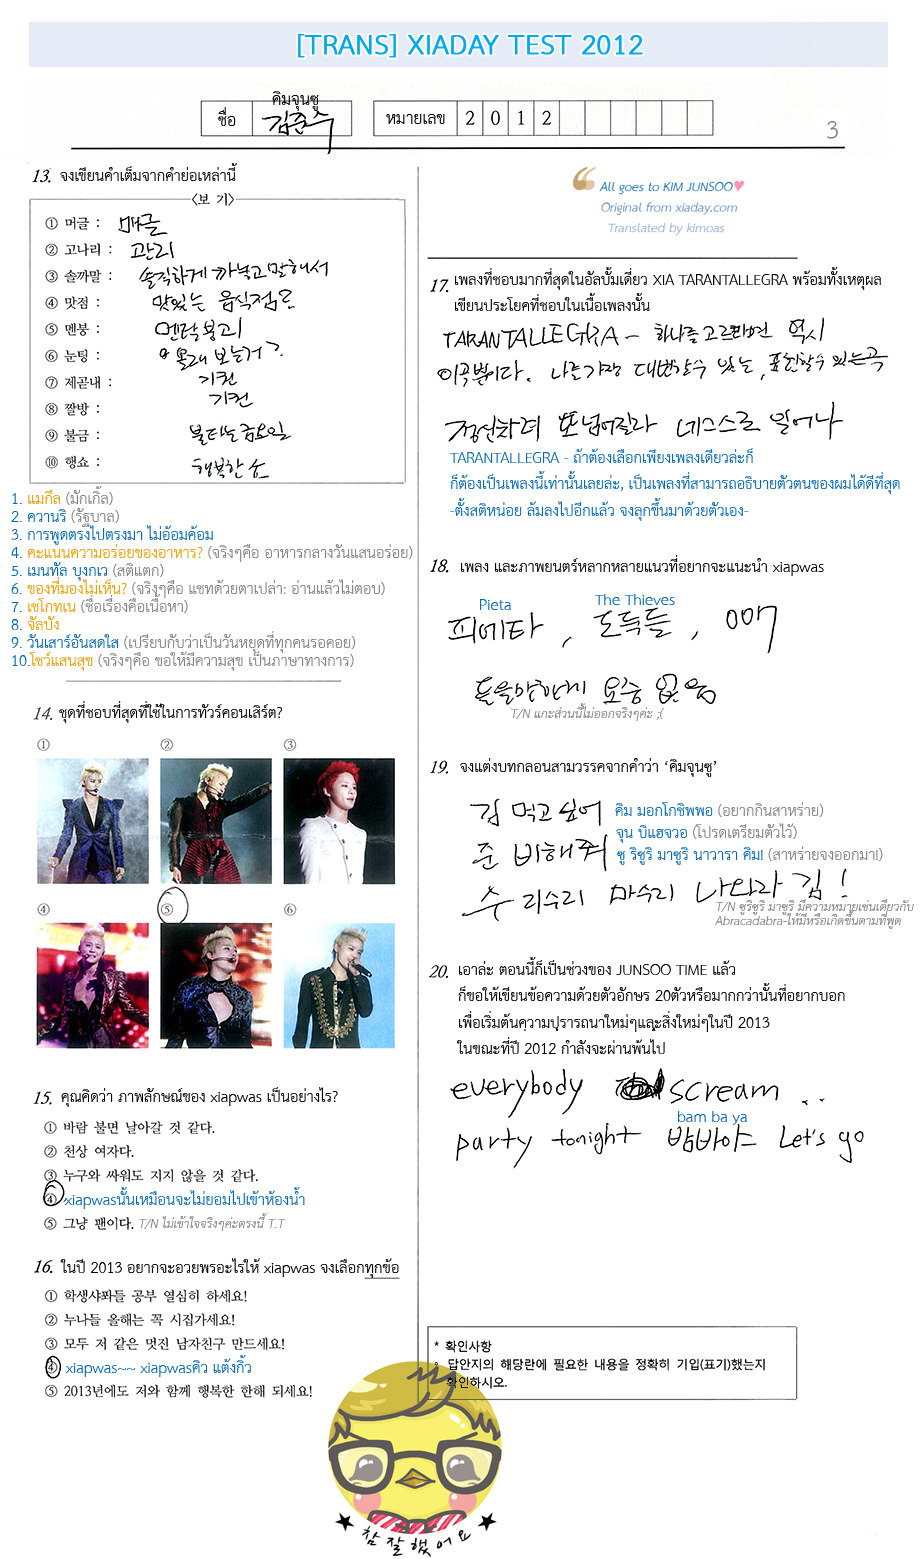 [TRANS] XIADAY TEST 2012
คิมจุนซู
ชื่อ 김준수 หมายเลข 2 0 1 2
3
13. จงเขียนคำเต็มจากคำย่อเหล่านี้
<보 기>
① 머글 : 매글
② 고나리 : 관리
③ 솔까말 : 솔직하게 까놓고 말해서
④ 맛점 : 맛있는 음식점?
⑤ 멘붕 : 멘탈붕괴
⑥ 눈팅 : 몰래 보는거?
⑦ 제곧내 : 기권
⑧ 짤방 : 기권
⑨ 불금 : 불타는 금요일
⑩ 행쇼 : 행복한 쇼
1. แมกึล (มักเกิ้ล)
2. ควานริ (รัฐบาล)
3. การพูดตรงไปตรงมา ไม่อ้อมค้อม
4. คะแนนความอร่อยของอาหาร? (จริงๆคือ อาหารกลางวันแสนอร่อย)
5. เมนทัล บุงกเว (สติแตก)
6. ของที่มองไม่เห็น? (จริงๆคือ แชทด้วยตาเปล่า: อ่านแล้วไม่ตอบ)
7. เชโกทเน (ชื่อเรื่องคือเนื้อหา)
8. จัลบัง
9. วันเสาร์อันสดใส (เปรียบกับว่าเป็นวันหยุดที่ทุกคนรอคอย)
10.โชว์แสนสุข (จริงๆคือ ขอให้มีความสุข เป็นภาษาทางการ)
14. ชุดที่ชอบที่สุดที่ใช้ในการทัวร์คอนเสิร์ต?
① ② ③
④ ⑤ ⑥
15. คุณคิดว่า ภาพลักษณ์ของ xiapwas เป็นอย่างไร?
① 바람 불면 날아갈 것 같다.
② 천상 여자다.
③ 누구와 싸워도 지지 않을 것 같다.
④ xiapwasนั้นเหมือนจะไม่ยอมไปเข้าห้องน้ำ
⑤ 그냥 팬이다. T/N ไม่เข้าใจจริงๆค่ะตรงนี้ T.T
16. ในปี 2013 อยากจะอวยพรอะไรให้ xiapwas จงเลือกทุกข้อ
① 학생샤퐈들 공부 열심히 하세요!
② 누나들 올해는 꼭 시집가세요!
③ 모두 저 같은 멋진 남자친구 만드세요!
④ xiapwas~~ xiapwasคิว แต้งกิ้ว
⑤ 2013년에도 저와 함께 행복한 한해 되세요!
All goes to KIM JUNSOO♥
Original from xiaday.com
Translated by kimoas
17. เพลงที่ชอบมากที่สุดในอัลบั้มเดี่ยว XIA TARANTALLEGRA พร้อมทั้งเหตุผล
เขียนประโยคที่ชอบในเนื้อเพลงนั้น
TARANTALLEGRA - 하나를 고르라면 역시
이곡뿐이다. 나를 가장 대변할수 있는, 표현할수 있는곡
정신차려 또 넘어질라 네 스스로 일어나
TARANTALLEGRA - ถ้าต้องเลือกเพียงเพลงเดียวล่ะก็
ก็ต้องเป็นเพลงนี้เท่านั้นเลยล่ะ, เป็นเพลงที่สามารถอธิบายตัวตนของผมได้ดีที่สุด
-ตั้งสติหน่อย ล้มลงไปอีกแล้ว จงลุกขึ้นมาด้วยตัวเอง-
18. เพลง และภาพยนตร์หลากหลายแนวที่อยากจะแนะนำ xiapwas
Pieta The Thieves
피에타 , 도둑들 , 007
없음
T/N แกะส่วนนี้ไม่ออกจริงๆค่ะ ;(
19. จงแต่งบทกลอนสามวรรคจากคำว่า ‘คิมจุนซู’
김 먹고 싶어 คิม มอกโกชิพพอ (อยากกินสาหร่าย)
준 비해줘 จุน บิแฮจวอ (โปรดเตรียมตัวไว้)
ซู ริซูริ มาซูริ นาวารา คิม! (สาหร่ายจงออกมา!)
수 리수리 마수리 나와라 김!
T/N ซูริซูริ มาซูริ มีความหมายเช่นเดียวกับ
Abracadabra-ให้มีหรือเกิดขึ้นตามที่พูด
20. เอาล่ะ ตอนนี้ก็เป็นช่วงของ JUNSOO TIME แล้ว
ก็ขอให้เขียนข้อความด้วยตัวอักษร 20ตัวหรือมากกว่านั้นที่อยากบอก
เพื่อเริ่มต้นความปรารถนาใหม่ๆและสิ่งใหม่ๆในปี 2013
ในขณะที่ปี 2012 กำลังจะผ่านพ้นไป
everybody scream ..
bam ba ya
party tonight 밤바야 Let's go
* 확인사항
◦ 답안지의 해당란에 필요한 내용을 정확히 기입(표기)했는지
확인하시오.
★ 참 잘했어요 ★